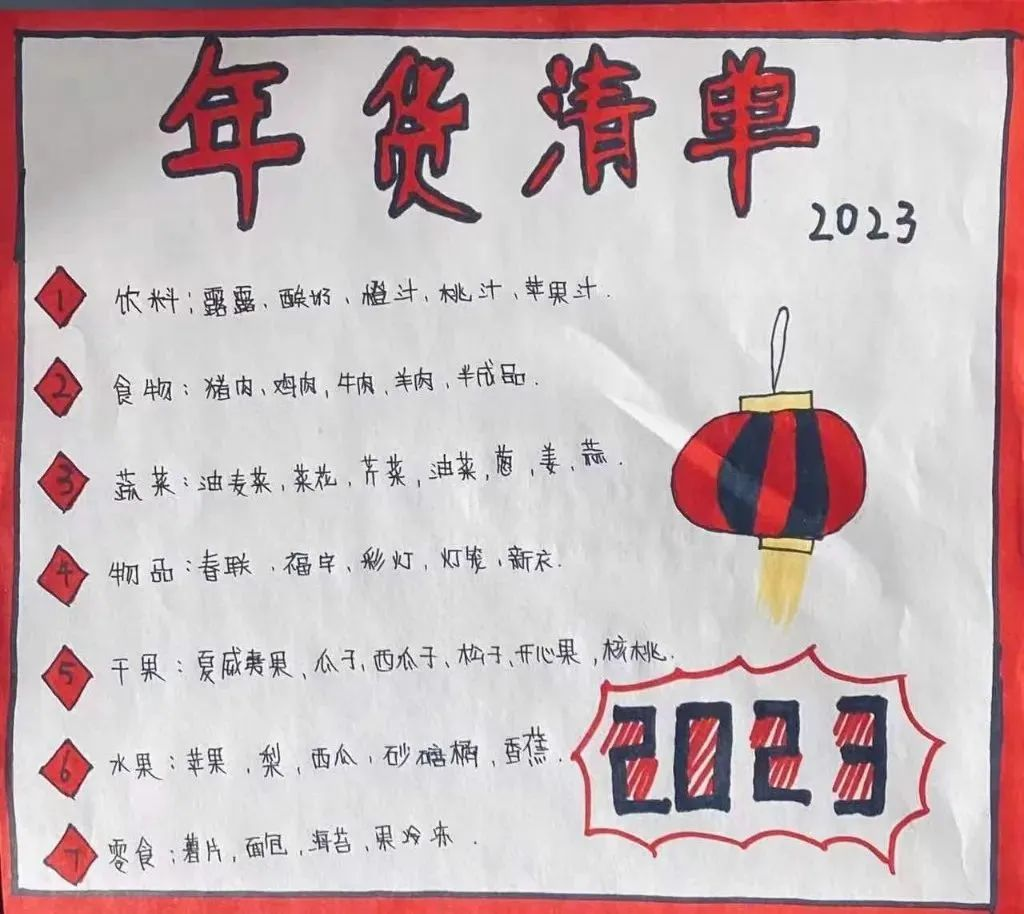 年货清单
2023
1 饮料:露露、酸奶、橙汁、桃汁、苹果汁.
2 食物:猪肉、鸡肉,牛肉、羊肉、半成品.
3 蔬菜:油麦菜,菜花,芹菜,油菜,葱,姜,蒜.
4 物品:春联、福字、彩灯,灯笼、新衣.
5 干果:夏威夷果,瓜子、西瓜子、松子、开心果,核桃.
6 水果:苹果,梨,西瓜,砂糖橘,香蕉.
7 零食:薯片,面包,海苔,果冷冻.
2023